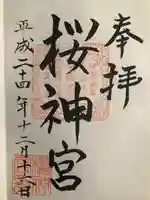 奉拝
桜神宮
平成二十四年十二月十六日